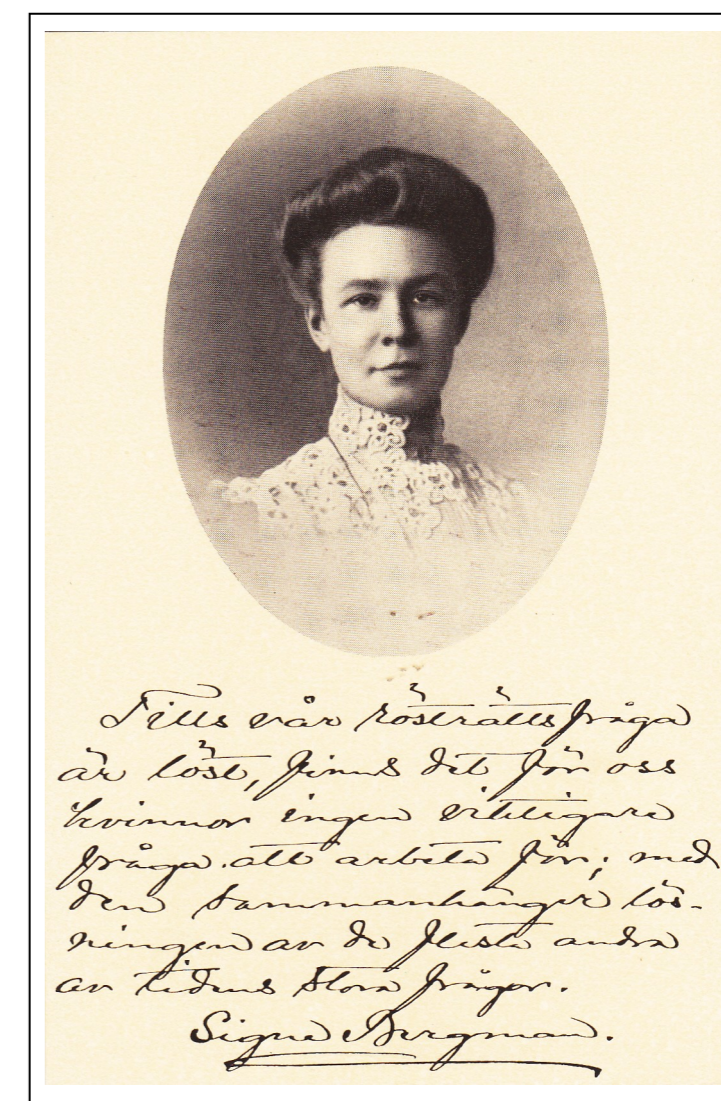 Tills vår rösträttsfråga
är löst, finns det för oss
kvinnor ingen viktigare
fråga att arbeta för; med
den sammanhänger lös-
ningen av de flesta andra
av tidens stora frågor.
Signe Bergman.